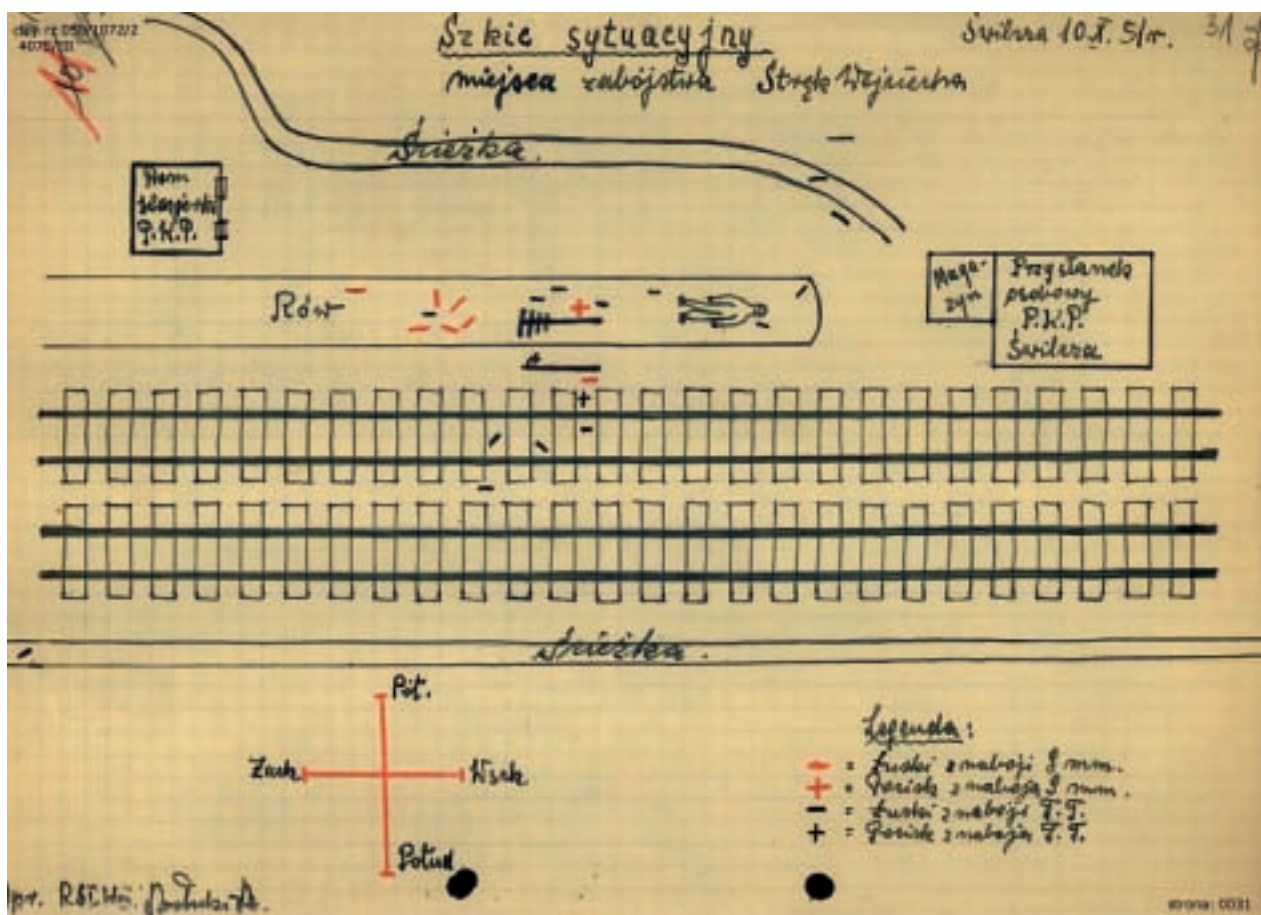 Szkic sytuacyjny
miejsca zabójstwa Stręk Wojciecha
Świlcza 10.X.51r.
31
Ścieżka.
Dom
P.K.P.
Rów
Maga-
zyn
Przystanek
osobowy
P.K.P.
Świlcza
Ścieżka.
Półn.
Zach
Wsch
Połud
Legenda:
- = Łuski z naboji 9 mm.
+ = Pocisk z naboja 9 mm.
- = Łuski z naboji T.T.
+ = Pocisk z naboja T.T.
strona: 0031